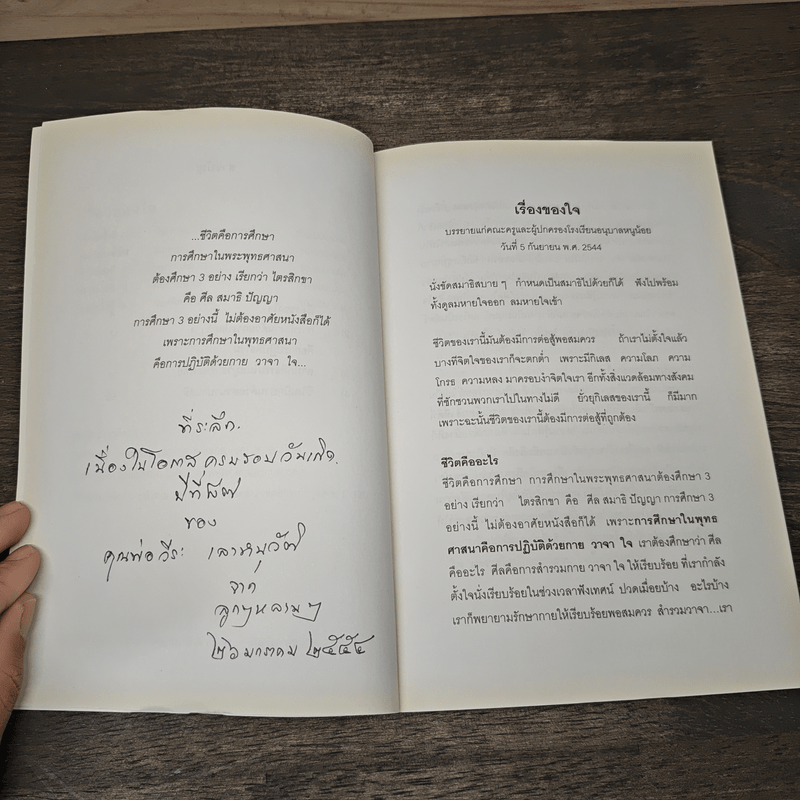 ...ชีวิตคือการศึกษา
การศึกษาในพระพุทธศาสนา
ต้องศึกษา 3 อย่าง เรียกว่า ไตรสิกขา
คือ ศีล สมาธิ ปัญญา
การศึกษา 3 อย่างนี้ ไม่ต้องอาศัยหนังสือก็ได้
เพราะการศึกษาในพุทธศาสนา
คือการปฏิบัติด้วยกาย วาจา ใจ...
ที่ระลึก
เนื่องในโอกาส ครบรอบวันเกิด
ปีที่
ของ
คุณพ่อวีระ
จาก
ลูกๆหลานๆ
๒๖ มกราคม ๒๕๕๔
เรื่องของใจ
บรรยายแก่คณะครูและผู้ปกครองโรงเรียนอนุบาลหนูน้อย
วันที่ 5 กันยายน พ.ศ. 2544
นั่งขัดสมาธิสบาย ๆ กำหนดเป็นสมาธิไปด้วยก็ได้ ฟังไปพร้อม
ทั้งดูลมหายใจออก ลมหายใจเข้า
ชีวิตของเรานี้มันต้องมีการต่อสู้พอสมควร ถ้าเราไม่ตั้งใจแล้ว
บางทีจิตใจของเราก็จะตกต่ำ เพราะมีกิเลส ความโลภ ความ
โกรธ ความหลง มาครอบงำจิตใจเรา อีกทั้งสิ่งแวดล้อมทางสังคม
ที่ชักชวนพวกเราไปในทางไม่ดี ยั่วยุกิเลสของเรานี้ ก็มีมาก
เพราะฉะนั้นชีวิตของเรานี้ต้องมีการต่อสู้ที่ถูกต้อง
ชีวิตคืออะไร
ชีวิตคือการศึกษา การศึกษาในพระพุทธศาสนาต้องศึกษา 3
อย่าง เรียกว่า ไตรสิกขา คือ ศีล สมาธิ ปัญญา การศึกษา 3
อย่างนี้ ไม่ต้องอาศัยหนังสือก็ได้ เพราะการศึกษาในพุทธ
ศาสนาคือการปฏิบัติด้วยกาย วาจา ใจ เราต้องศึกษาว่า ศีล
คืออะไร ศีลคือการสำรวมกาย วาจา ใจ ให้เรียบร้อย ที่เรากำลัง
ตั้งใจนั่งเรียบร้อยในช่วงเวลาฟังเทศน์ ปวดเมื่อยบ้าง อะไรบ้าง
เราก็พยายามรักษากายให้เรียบร้อยพอสมควร สำรวมวาจา...เรา